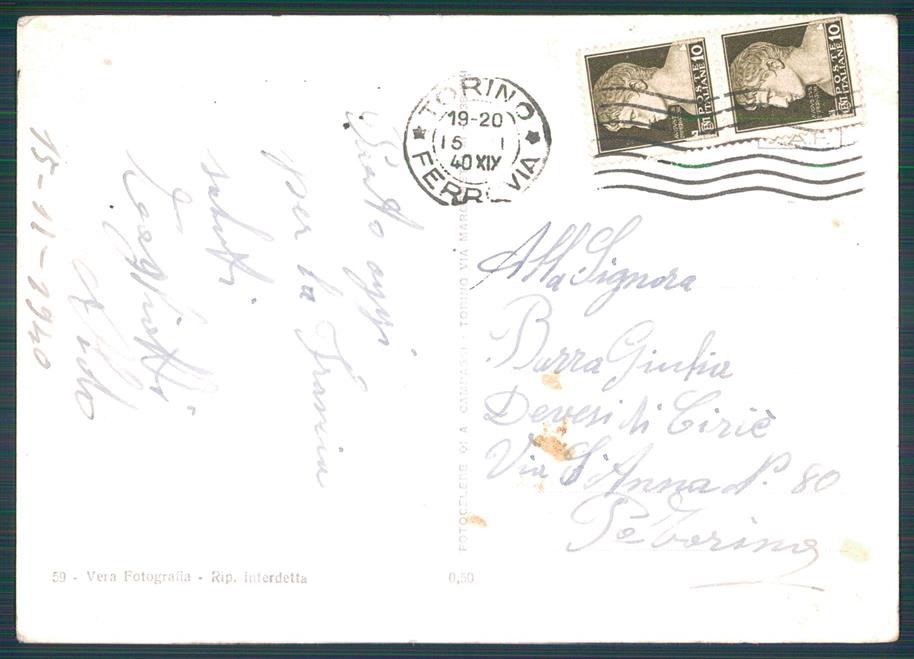 TORINO
19-20
15 I
40 XIX
FERROVIA
POSTE ITALIANE 10
POSTE ITALIANE 10
oggi
per la Francia
saluti
Aldo
15-11-1940
FOTOCELERE DI A. CAMPASSI - TORINO VIA MARO
Alla Signora
Barra Giulia
Devesi di Ciriè
Via S. Anna N. 80
Po Torino
59 - Vera Fotografia - Rip. interdetta
0,50